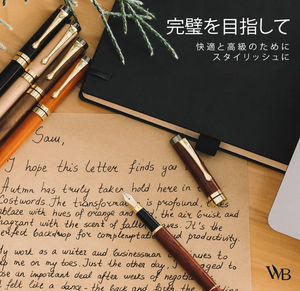 完璧を目指して
快適と高級のために
スタイリッシュに
Sam,
I hope this letter finds you
Autmn has truly taken hold here in the
Costwords. The transformation is profound,
ablaze with hues of orange and red, the air brisk and
fragrant with the scent of fallen leaves. It's the
perfect backdrop for complemptation and productivity.
My work as a writer and businessman continues to
keep me on my toes. Just the other day, I managed to
close an important deal after weeks of negotiation
felt like a dance - the back and forth, the
WB